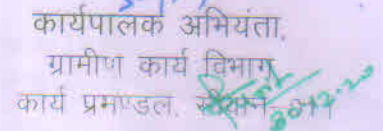 कार्यपालक अभियंता,
ग्रामीण कार्य विभाग
कार्य प्रमण्डल,